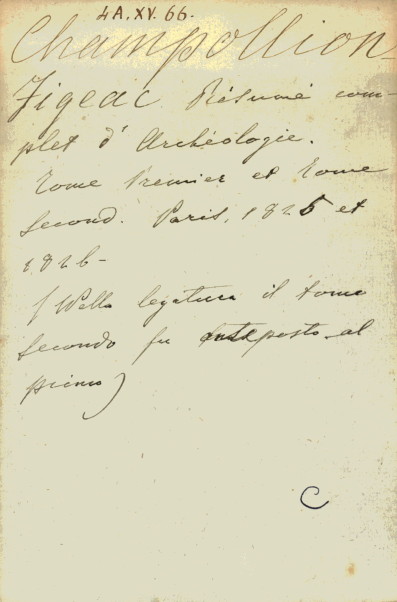 4A.XV.66.
Champollion-
Figeac Résumé com-
plet d' Archéologie.
Tome Premier et Tome
Second. Paris, 1825 et
1826-
(Nella legatura il tomo
secondo fu anteposto al
primo)
C